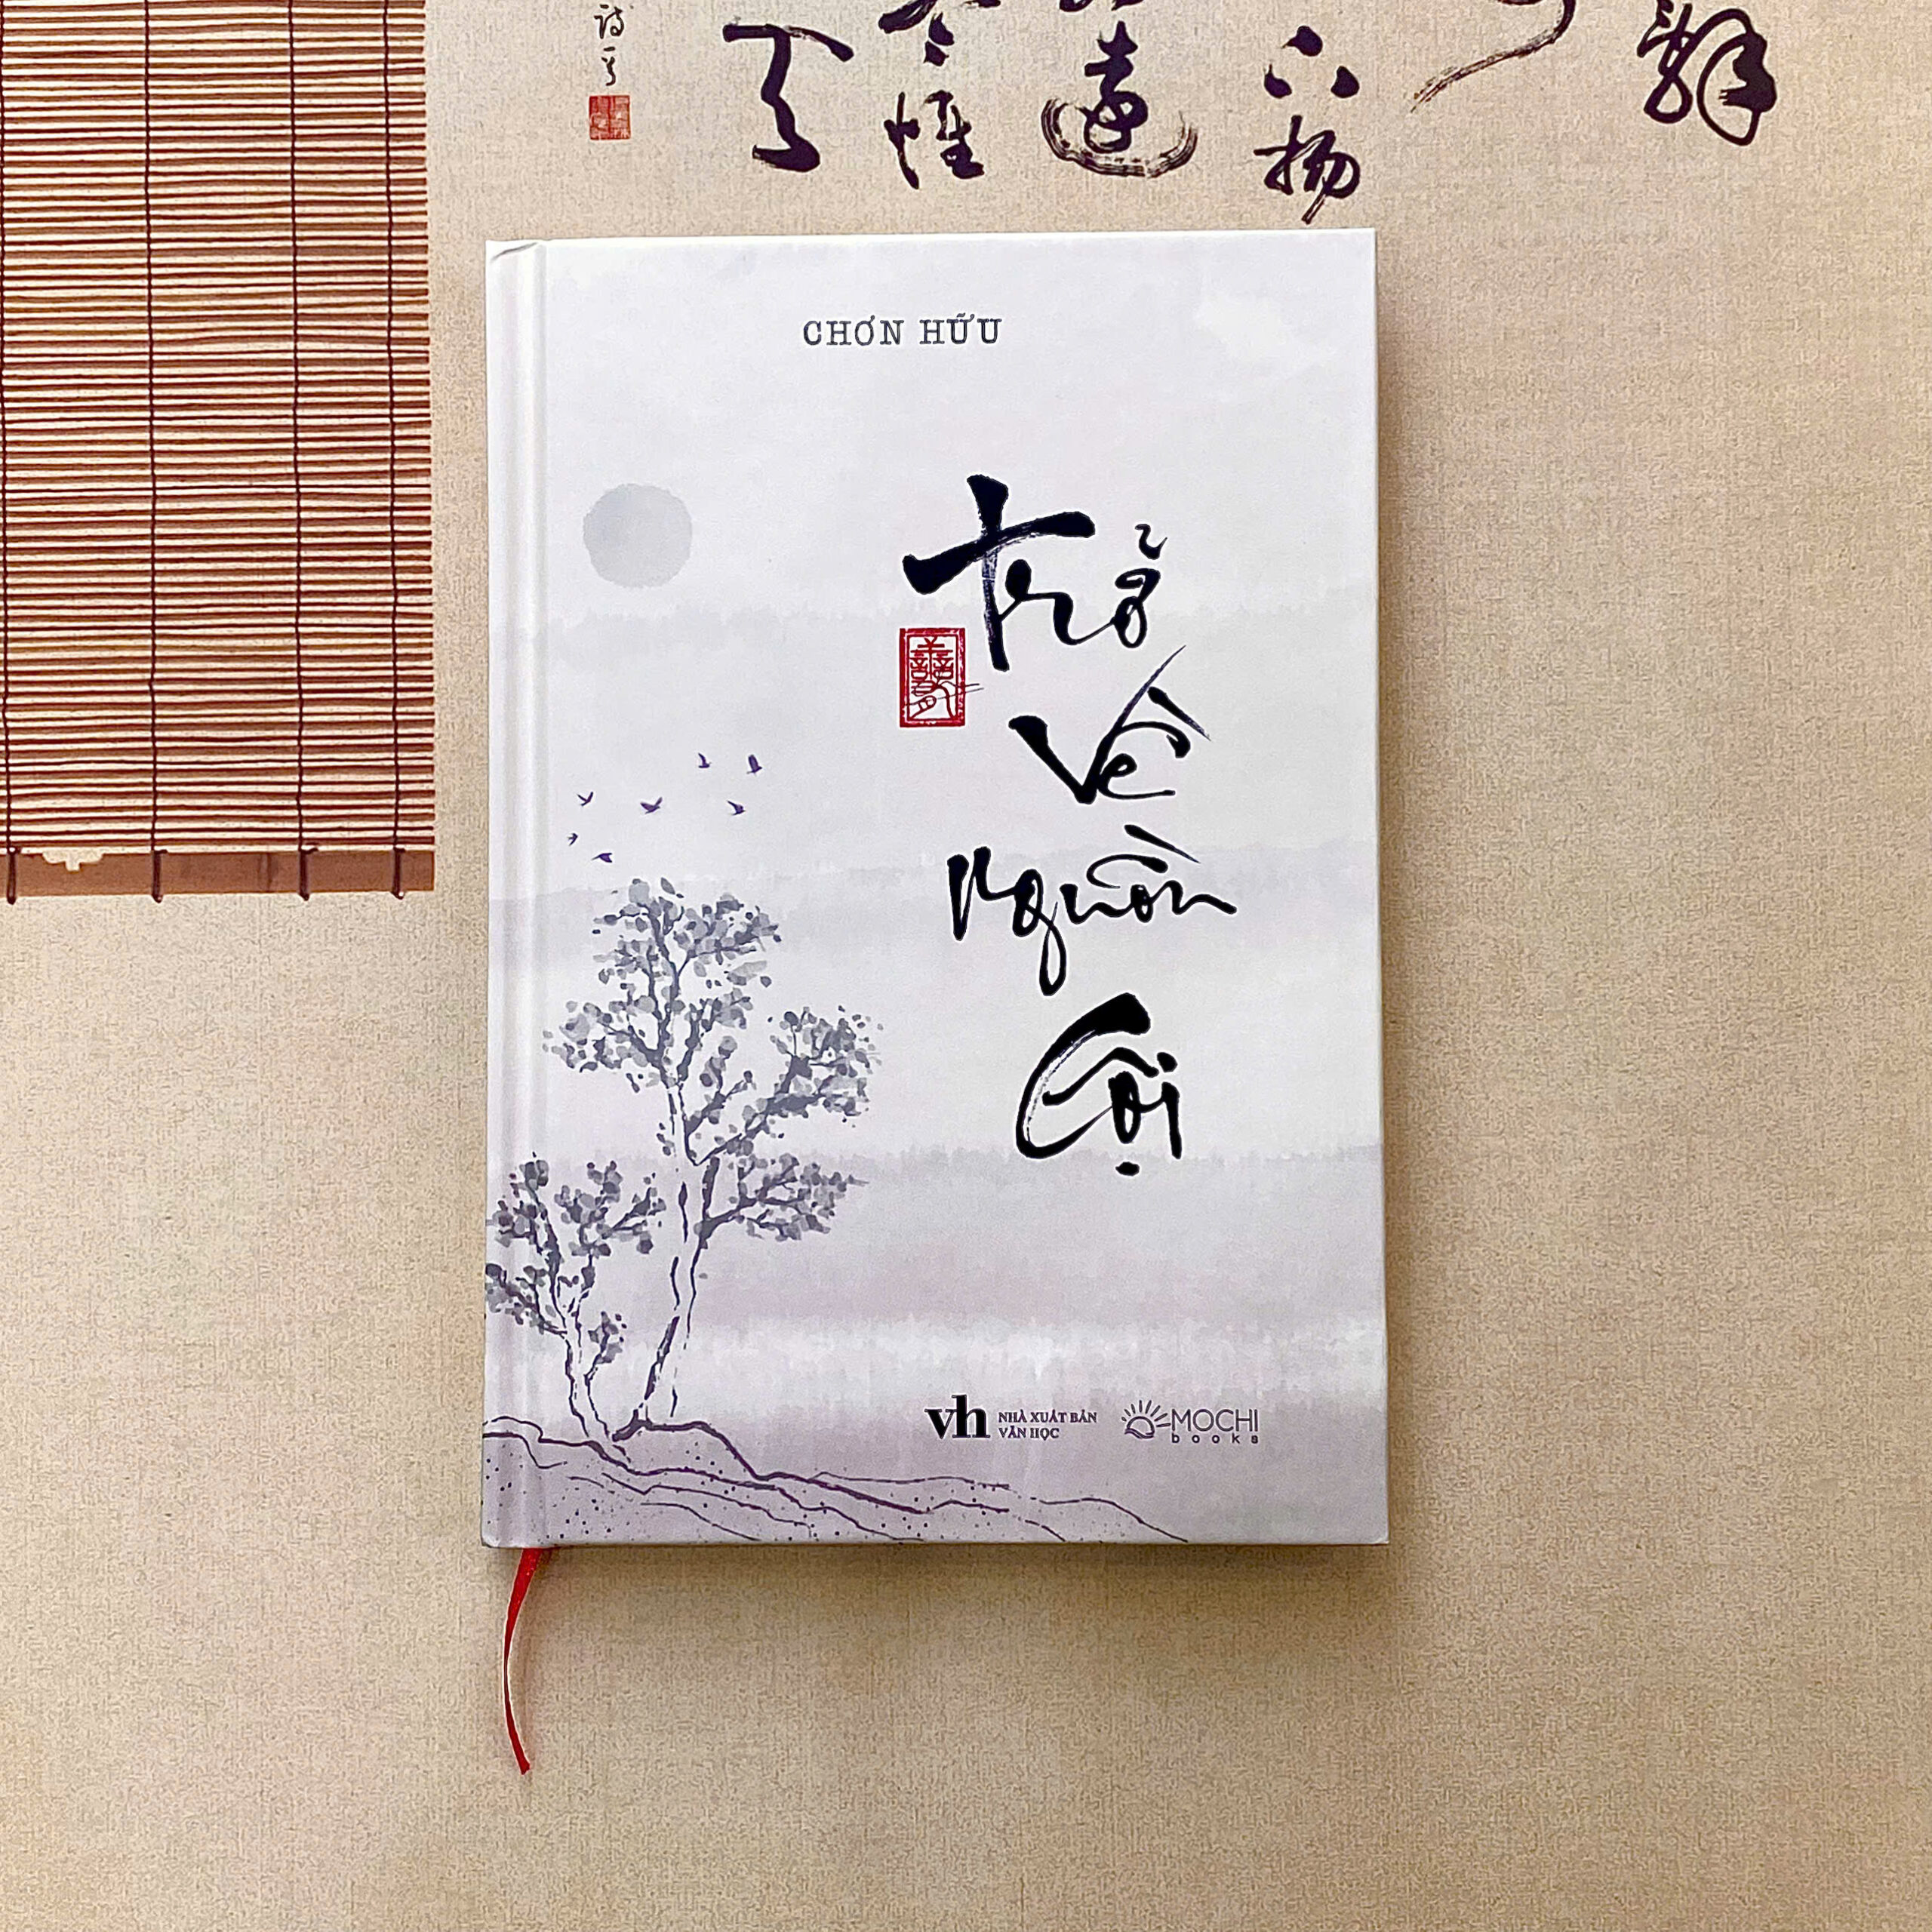 詩一首
惟
遠
六
揚
辭
CHƠN HỮU
Trở
Về
Nguồn
Cội
vh NHÀ XUẤT BẢN
VĂN HỌC
MOCHI
books